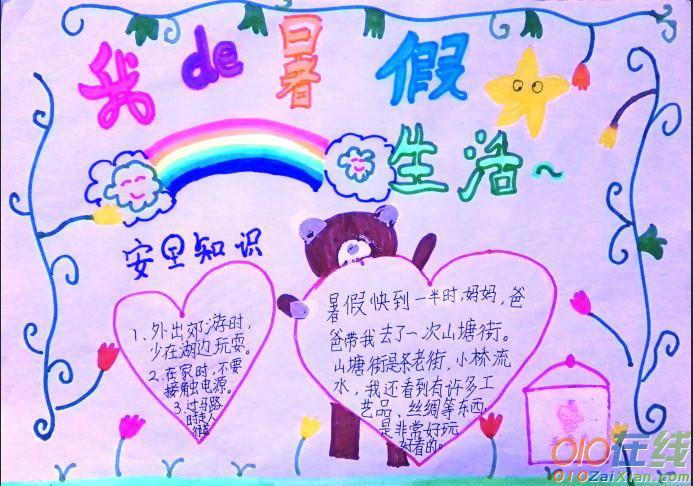 我de暑假
生活~
安里知识
1、外出郊游时，
少在湖边玩耍。
2、在家时，不要
接触电源。
3、过马路
时走人
行道
暑假快到一半时，妈妈，爸
爸带我去了一次山塘街。
山塘街是条老街，小桥流
水，我还看到有许多工
艺品、丝绸等东西，
是非常好玩
好看的。
010在线
010ZaiXian.com